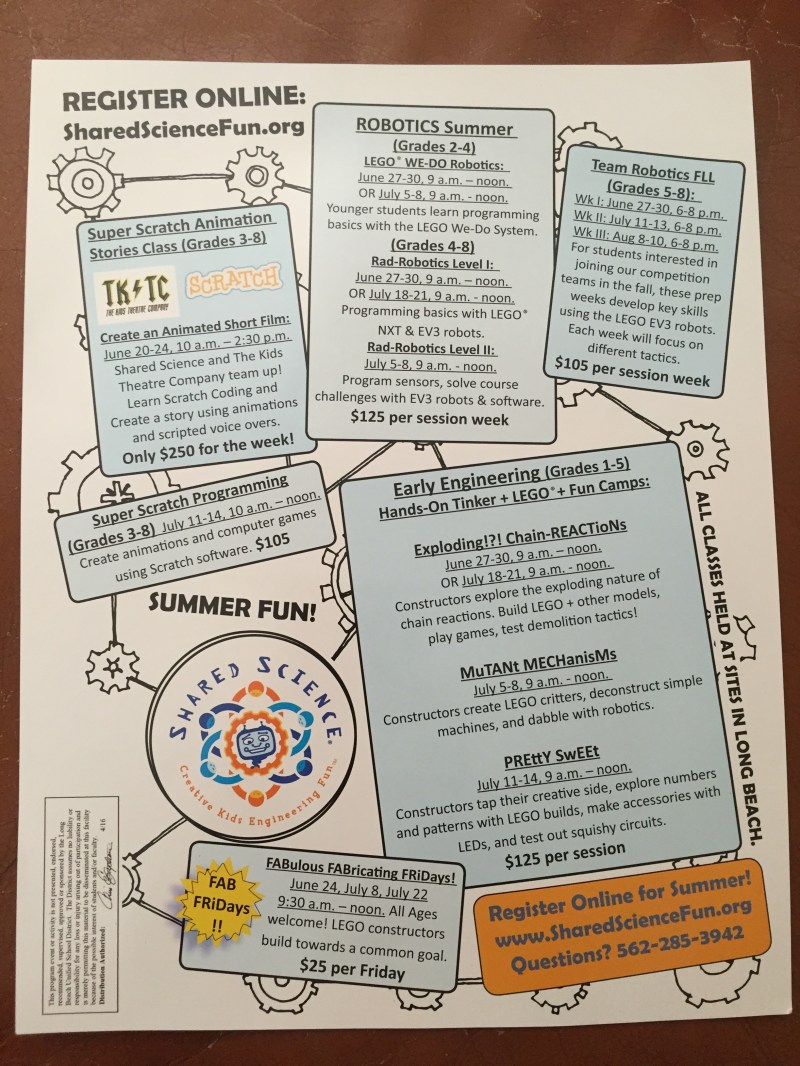 REGISTER ONLINE:
SharedScienceFun.org
Super Scratch Animation
Stories Class (Grades 3-8)
TK TC
THE KIDS THEATRE COMPANY
SCRATCH
Create an Animated Short Film:
June 20-24, 10 a.m. – 2:30 p.m.
Shared Science and The Kids
Theatre Company team up!
Learn Scratch Coding and
Create a story using animations
and scripted voice overs.
Only $250 for the week!
ROBOTICS Summer
(Grades 2-4)
LEGO® WE-DO Robotics:
June 27-30, 9 a.m. – noon.
OR July 5-8, 9 a.m. - noon.
Younger students learn programming
basics with the LEGO We-Do System.
(Grades 4-8)
Rad-Robotics Level I:
June 27-30, 9 a.m. – noon.
OR July 18-21, 9 a.m. - noon.
Programming basics with LEGO®
NXT & EV3 robots.
Rad-Robotics Level II:
July 5-8, 9 a.m. - noon.
Program sensors, solve course
challenges with EV3 robots & software.
$125 per session week
Team Robotics FLL
(Grades 5-8):
Wk I: June 27-30, 6-8 p.m.
Wk II: July 11-13, 6-8 p.m.
Wk III: Aug 8-10, 6-8 p.m.
For students interested in
joining our competition
teams in the fall, these prep
weeks develop key skills
using the LEGO EV3 robots.
Each week will focus on
different tactics.
$105 per session week
Super Scratch Programming
(Grades 3-8) July 11-14, 10 a.m. – noon.
Create animations and computer games
using Scratch software. $105
SUMMER FUN!
Early Engineering (Grades 1-5)
Hands-On Tinker + LEGO® + Fun Camps:
Exploding!?! Chain-REACTioNs
June 27-30, 9 a.m. – noon.
OR July 18-21, 9 a.m. - noon.
Constructors explore the exploding nature of
chain reactions. Build LEGO + other models,
play games, test demolition tactics!
MuTANt MECHanisMs
July 5-8, 9 a.m. - noon.
Constructors create LEGO critters, deconstruct simple
machines, and dabble with robotics.
PREttY SwEEt
July 11-14, 9 a.m. – noon.
Constructors tap their creative side, explore numbers
and patterns with LEGO builds, make accessories with
LEDs, and test out squishy circuits.
$125 per session
ALL CLASSES HELD AT SITES IN LONG BEACH.
SHARED SCIENCE®
Creative Kids Engineering Fun
FAB
FRiDays
!!
FABulous FABricating FRiDays!
June 24, July 8, July 22
9:30 a.m. – noon. All Ages
welcome! LEGO constructors
build towards a common goal.
$25 per Friday
Register Online for Summer!
www.SharedScienceFun.org
Questions? 562-285-3942
This program event or activity is not presented, endorsed,
recommended, supervised, approved or sponsored by the Long
Beach Unified School District. The District assumes no liability or
responsibility for any loss or injury arising out of participation and
is merely permitting this material to be disseminated at this facility
because of the possible interest of students and/or faculty.
Distribution Authorized: 4/16